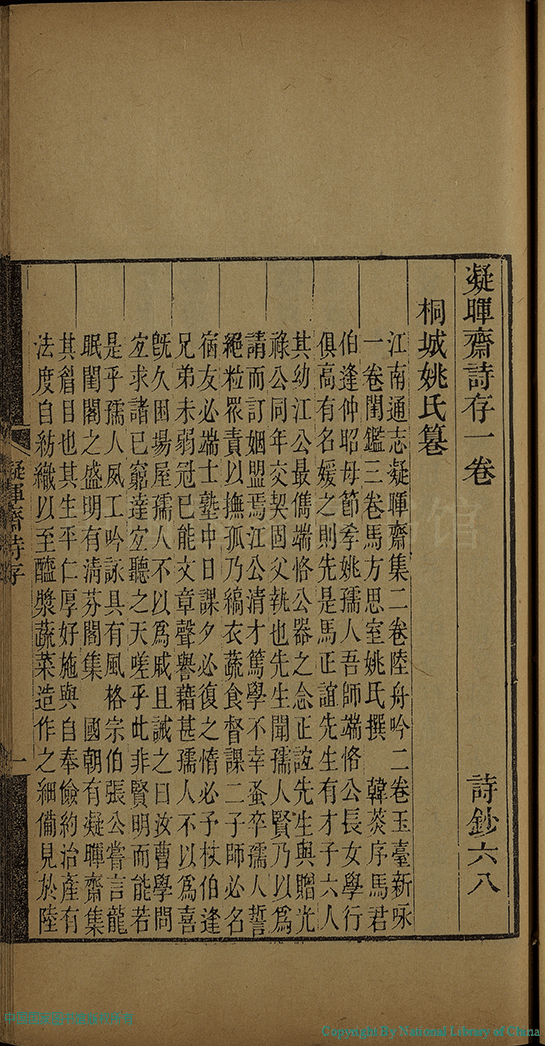 凝暉齋詩存一卷
詩鈔六八
桐城姚氏簒
江南通志凝暉齋集二卷陸舟吟二卷玉臺新咏
一卷閨鑑三卷馬方思室姚氏撰　韓菼序馬君
伯逢仲昭母節孝姚孺人吾師端恪公長女學行
俱高有名媛之則先是馬正誼先生有才子六人
其幼江公最儁端恪公器之念正誼先生與贈光
祿公同年交契固父執也先生聞孺人賢乃以爲
請而訂姻盟焉江公清才篤學不幸蚤卒孺人誓
絕粒眾責以撫孤乃縞衣蔬食督課二子師必名
宿友必端士塾中日課夕必復之惰必予杖伯逢
兄弟未弱冠已能文章聲譽藉甚孺人不以爲喜
旣久困場屋孺人不以爲戚且誡之曰汝曹學問
宐求諸已窮達宐聽之天嗟乎此非賢明而能若
是乎孺人夙工吟詠具有風格宗伯張公嘗言龍
眠閨閣之盛明有清芬閣集　國朝有凝暉齋集
其眉目也其生平仁厚好施與自奉儉約治產有
法度自紡織以至醯漿蔬菜造作之細備見於陸
凝暉齋詩存
一
Copyright By National Library of China